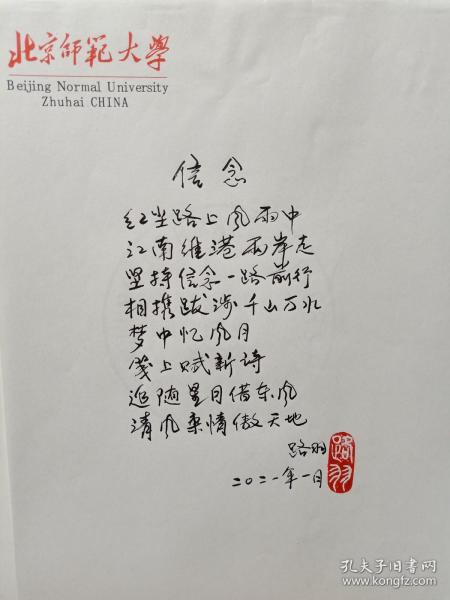 北京師範大學
Beijing Normal University
Zhuhai CHINA
信念
红尘路上风雨中
江南维港两岸走
坚持信念一路前行
相携跋涉千山万水
梦中忆风月
笺上赋新诗
追随星月借东风
清风柔情傲天地
路羽
路羽
二〇二一年一月
孔夫子旧书网
www.kongfz.com